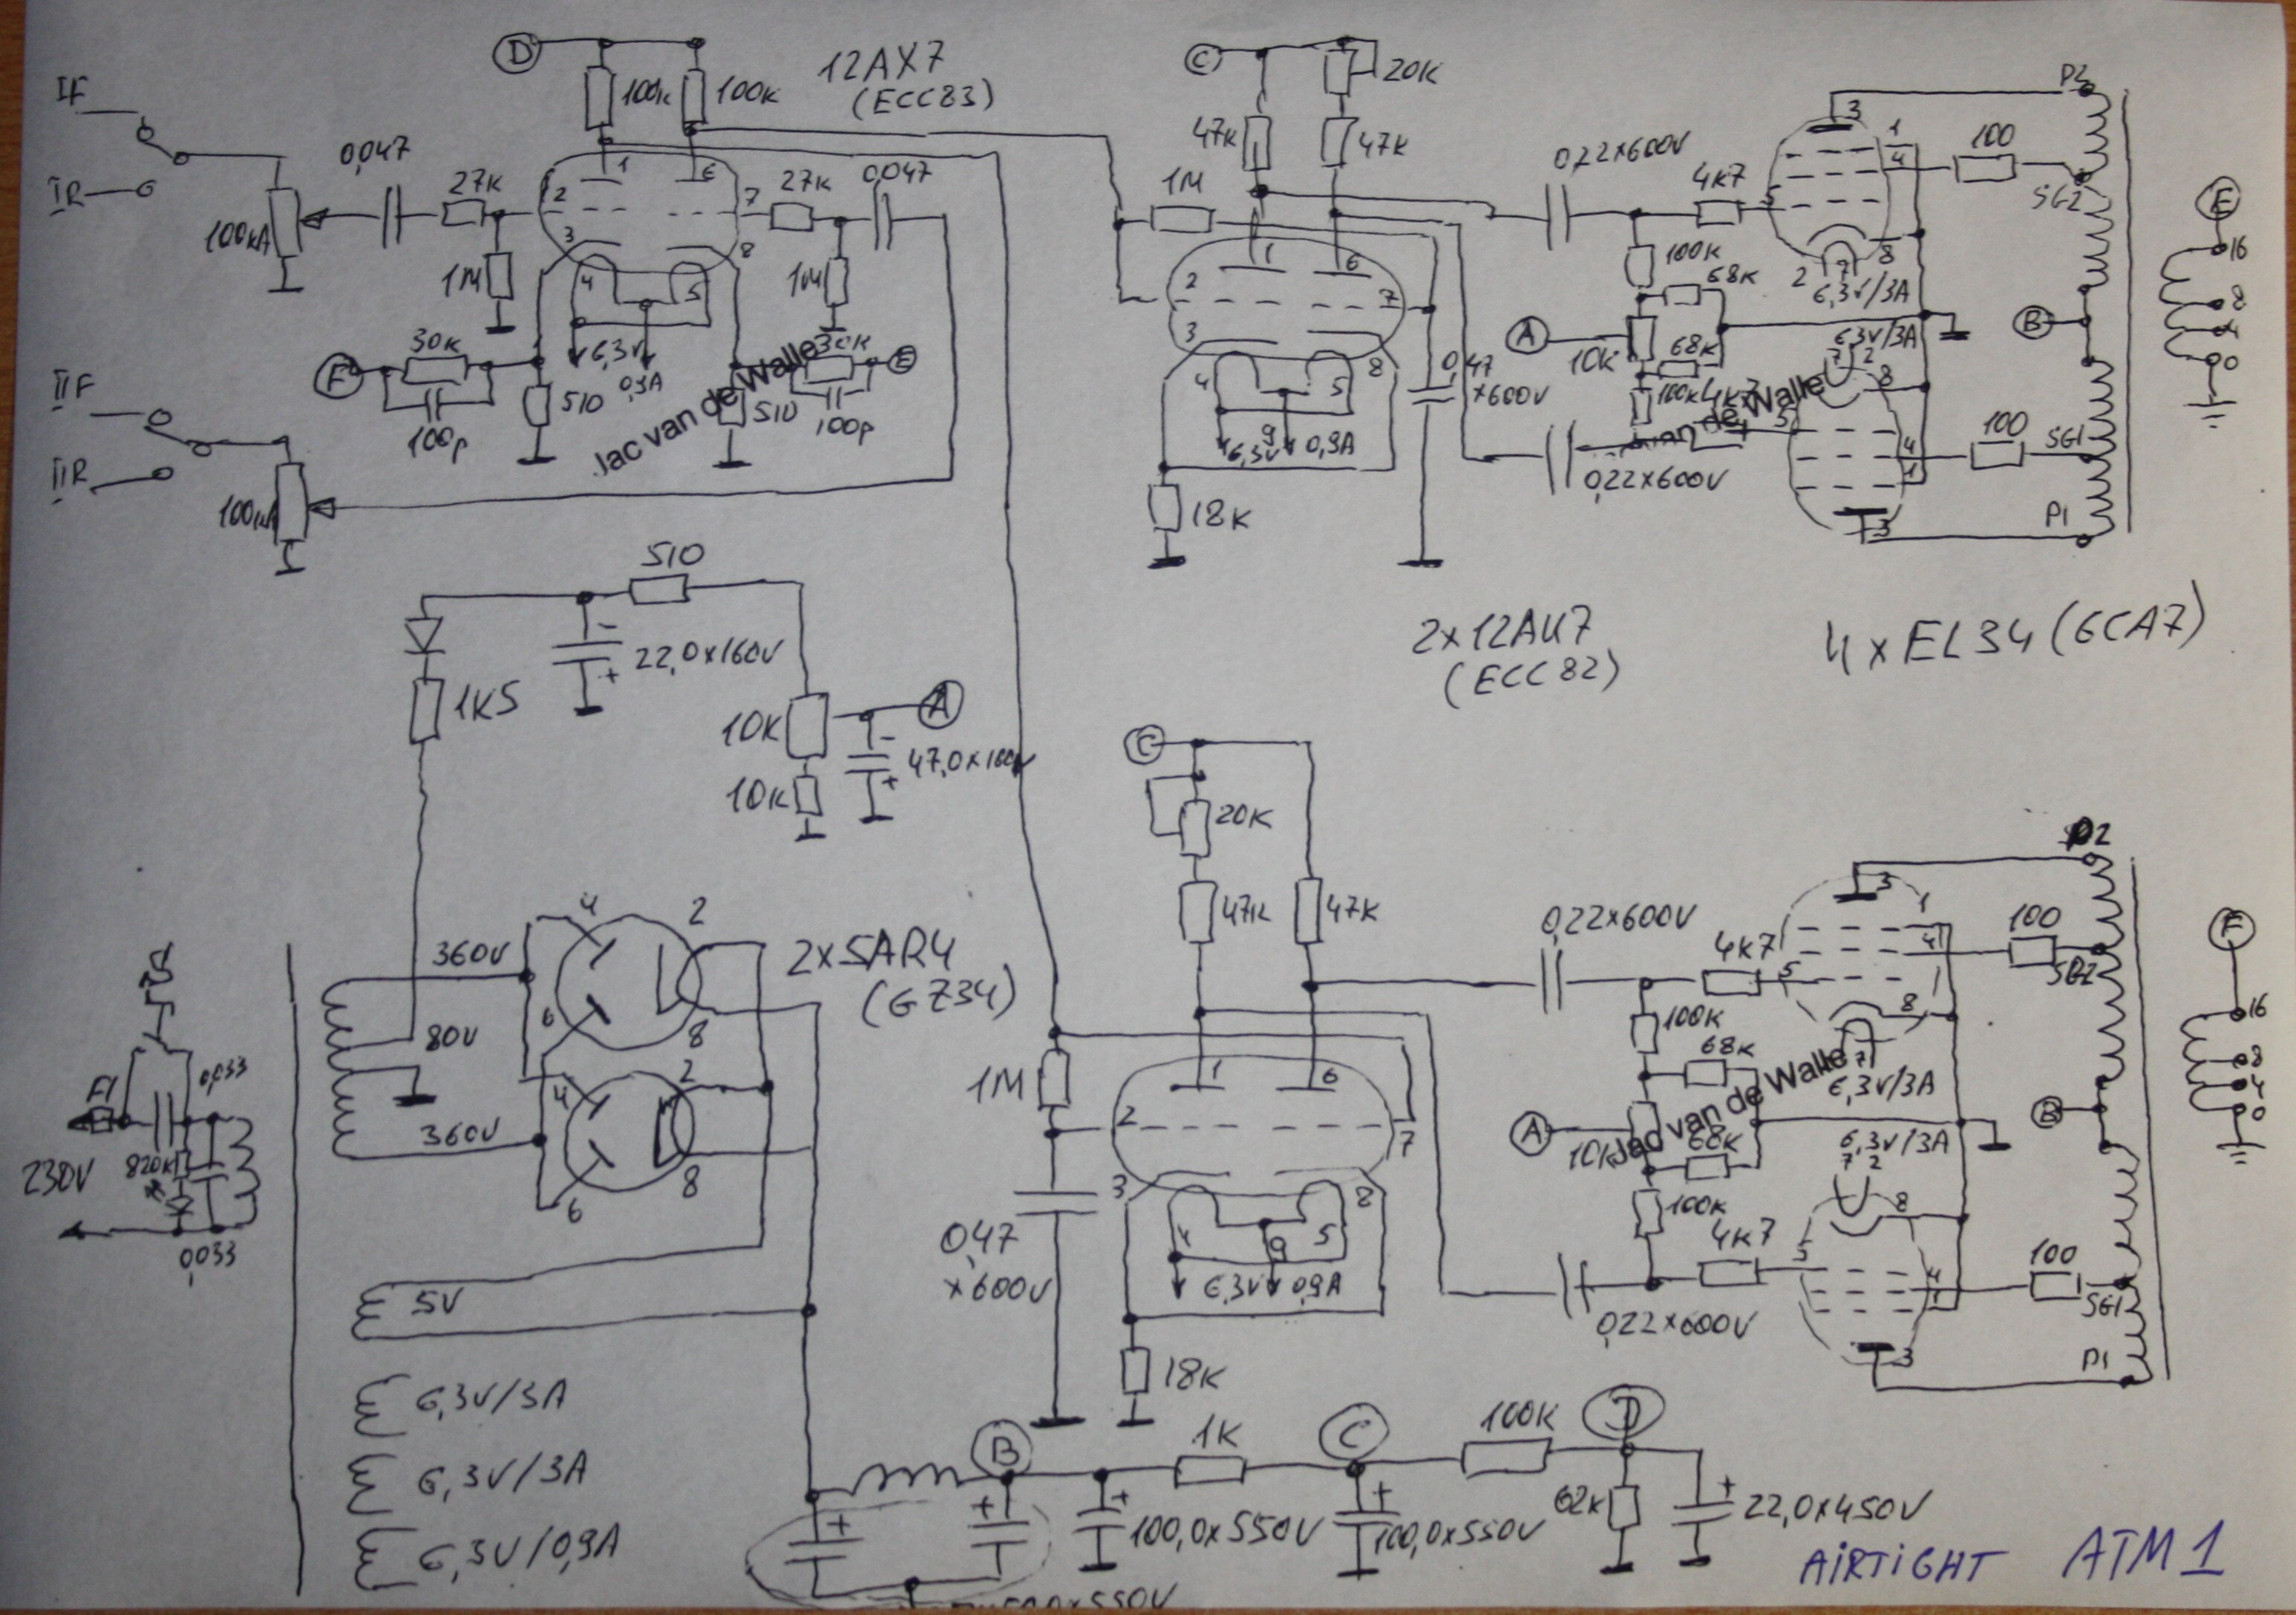 D
12AX7
(ECC83)
100K
100K
IF
IR
100KA
0,047
27K
1M
1
6
2
7
3
8
4
5
27K
0,047
1M
6,3V
0,9A
F
30K
100p
510
510
30K
100p
E
Jac van de Walle
IIF
IIR
C
20K
47K
47K
1M
1
6
2
7
3
8
4
5
9
6,3V
0,9A
18K
0,47
×600V
0,22×600V
4K7
100K
68K
A
10K
68K
100K
4K7
0,22×600V
an de Walle
3
1
4
5
8
2
7
6,3V/3A
6,3V/3A
7
2
8
5
4
1
3
100
100
P2
SG2
B
SG1
P1
E
16
8
4
0
510
22,0×160V
1K5
10K
10K
A
47,0×160V
2×12AU7
(ECC82)
4×EL34 (6CA7)
C
20K
47K
47K
1M
1
6
2
7
3
8
4
5
9
6,3V
0,9A
0,47
×600V
18K
0,22×600V
4K7
100K
68K
A
10K
68K
100K
4K7
0,22×600V
Jac van de Walle
3
1
4
5
8
7
6,3V/3A
6,3V/3A
7
2
8
5
4
1
3
100
100
P2
SG2
B
SG1
P1
F
16
8
4
0
360V
80V
360V
4
2
6
8
2×5AR4
(GZ34)
4
2
6
8
F1
0,033
820K
230V
0,033
5V
6,3V/3A
6,3V/3A
6,3V/0,9A
B
1K
C
100K
D
100,0×550V
100,0×550V
62K
22,0×450V
AiRTiGHT ATM1